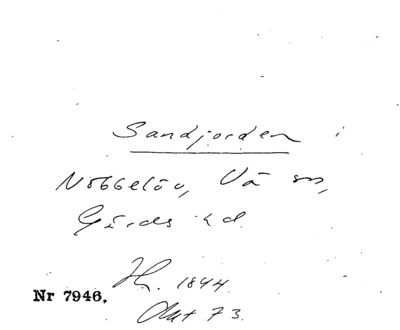 Sandjorden i
Nöbbelöv, Vä sn,
Gärds hd.
Hs. 1844
Nr 7946.
Akt 73.